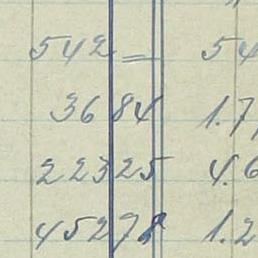 542 = 54
36 84 1.7
223 25 4.6
452 78 1.2